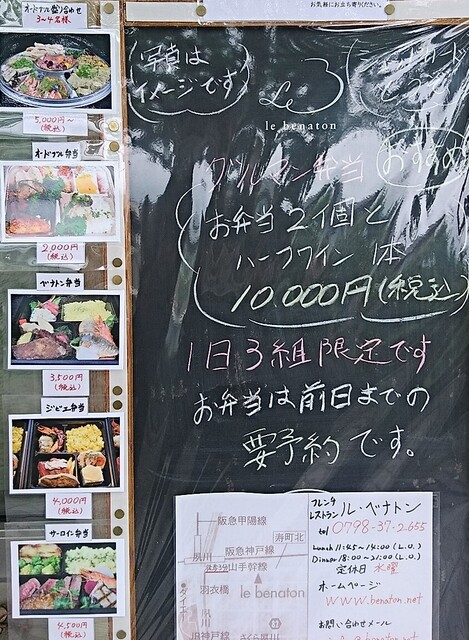 お気軽にお立ち寄りください。
オードブル盛り合わせ
3〜4名様
5,000円〜
(税込)
オードブル弁当
2,000円
(税込)
ベナトン弁当
3,500円
(税込)
ジビエ弁当
4,000円
(税込)
サーロイン弁当
4,500円
(税込)
写真は
イメージです
le benaton
グルマン弁当
おすすめ
お弁当2個と
ハーフワイン 1本
10,000円(税込)
1日3組限定です
お弁当は前日までの
要予約です。
阪急甲陽線
寿町北
夙川
阪急神戸線
山手幹線
羽衣橋
le benaton
夙川
JR神戸線
さくら夙川
フレンチ
レストラン ル・ベナトン
tel 0798-37-2655
Lunch 11:45〜14:00(L.O.)
Dinner 18:00〜21:00(L.O.)
定休日 水曜
ホームページ
www.benaton.net
お問い合わせメール